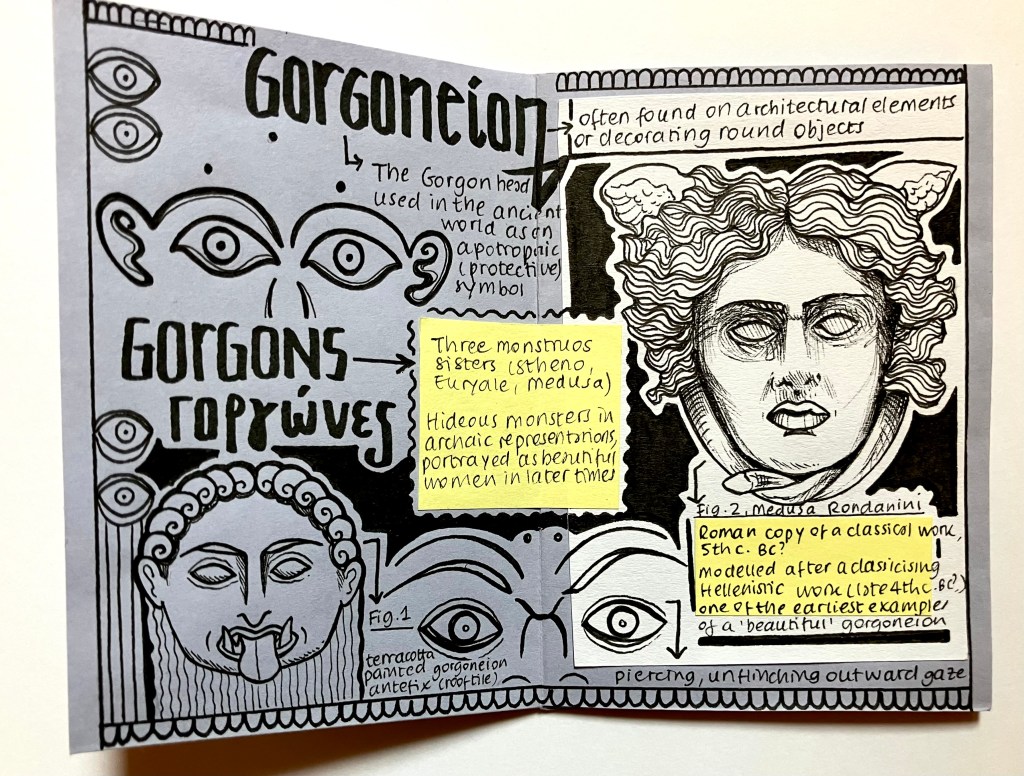 Gorgoneion
often found on architectural elements
or decorating round objects
The Gorgon head
used in the ancient
world as an
apotropaic
(protective)
symbol
GORGONS
Γοργώνες
Three monstruos
sisters (Stheno,
Euryale, Medusa)
Hideous monsters in
archaic representations,
portrayed as beautiful
women in later times
Fig. 2, Medusa Rondanini
Roman copy of a classical work,
5th c. BC?
modelled after a classicising
Hellenistic work (late 4th c. BC?)
one of the earliest examples
of a 'beautiful' gorgoneion
Fig. 1
terracotta
painted gorgoneion
antefix (roof tile)
piercing, unflinching outward gaze